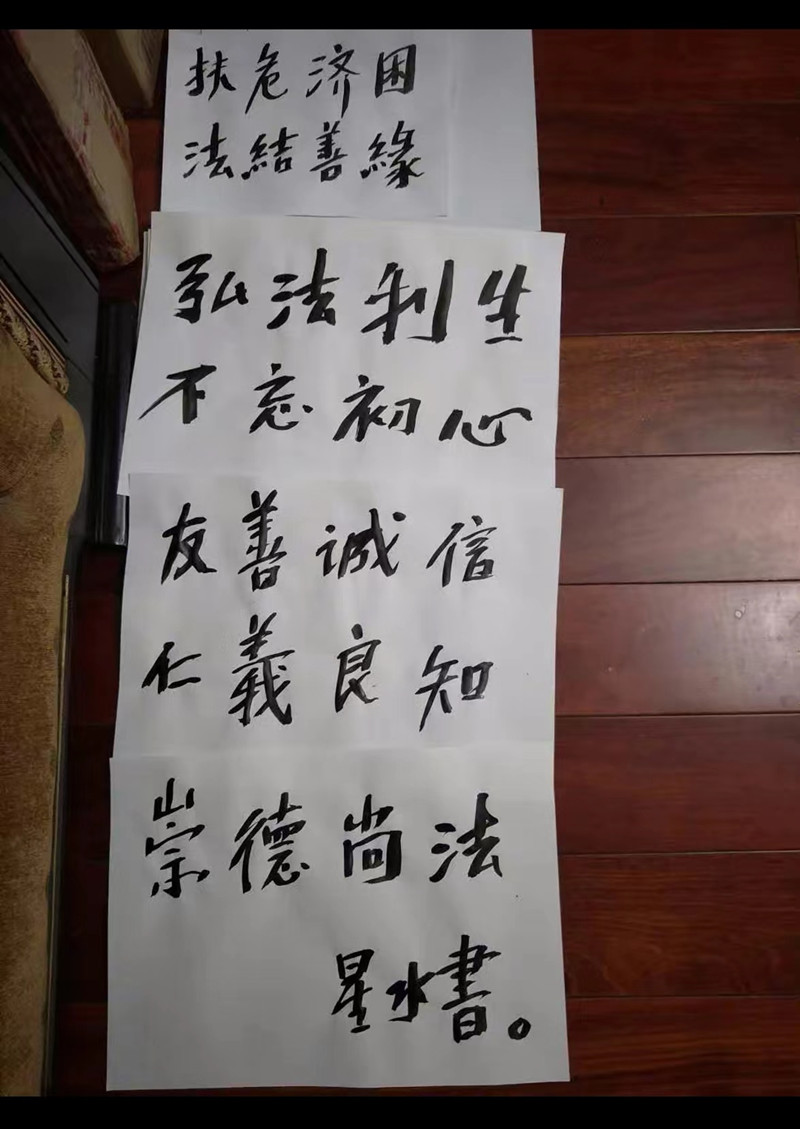 扶危济困
法結善緣
弘法利生
不忘初心
友善诚信
仁義良知
崇德尚法
星水書。